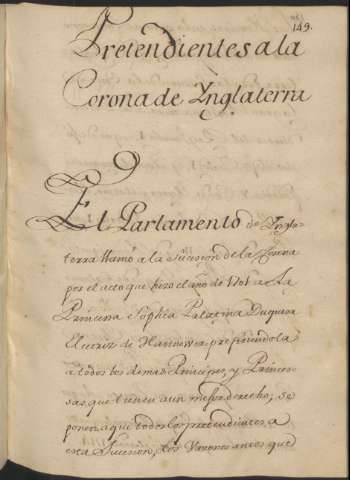 149.
Pretendientes a la
Corona de Ynglaterra
El Parlamento de Yngla-
terra llamó a la Sucesion de la Corona
por el acto que hizo el año de 1701 a La
Princesa Sophia Palatina Duquesa
Electriz de Hannover prefiriendola
a todos los demas Principes, y Prince-
sas que tienen aun mejor derecho; se
ponen aqui todos los pretendientes a
esta Sucesion, los Varones antes que